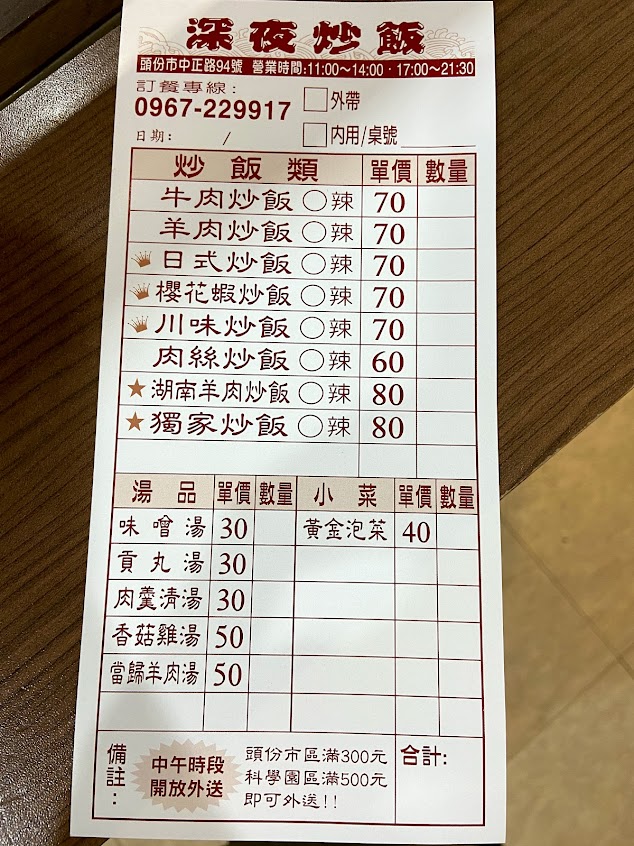 深夜炒飯
頭份市中正路94號 營業時間:11:00～14:00‧17:00～21:30
訂餐專線:
0967-229917 □外帶
日期: / □內用/桌號
炒飯類 單價 數量
牛肉炒飯 ○辣 70
羊肉炒飯 ○辣 70
日式炒飯 ○辣 70
櫻花蝦炒飯 ○辣 70
川味炒飯 ○辣 70
肉絲炒飯 ○辣 60
★湖南羊肉炒飯 ○辣 80
★獨家炒飯 ○辣 80
湯品 單價 數量 小菜 單價 數量
味噌湯 30 黃金泡菜 40
貢丸湯 30
肉羹清湯 30
香菇雞湯 50
當歸羊肉湯 50
備註: 中午時段 開放外送
頭份市區滿300元
科學園區滿500元
即可外送!!
合計: